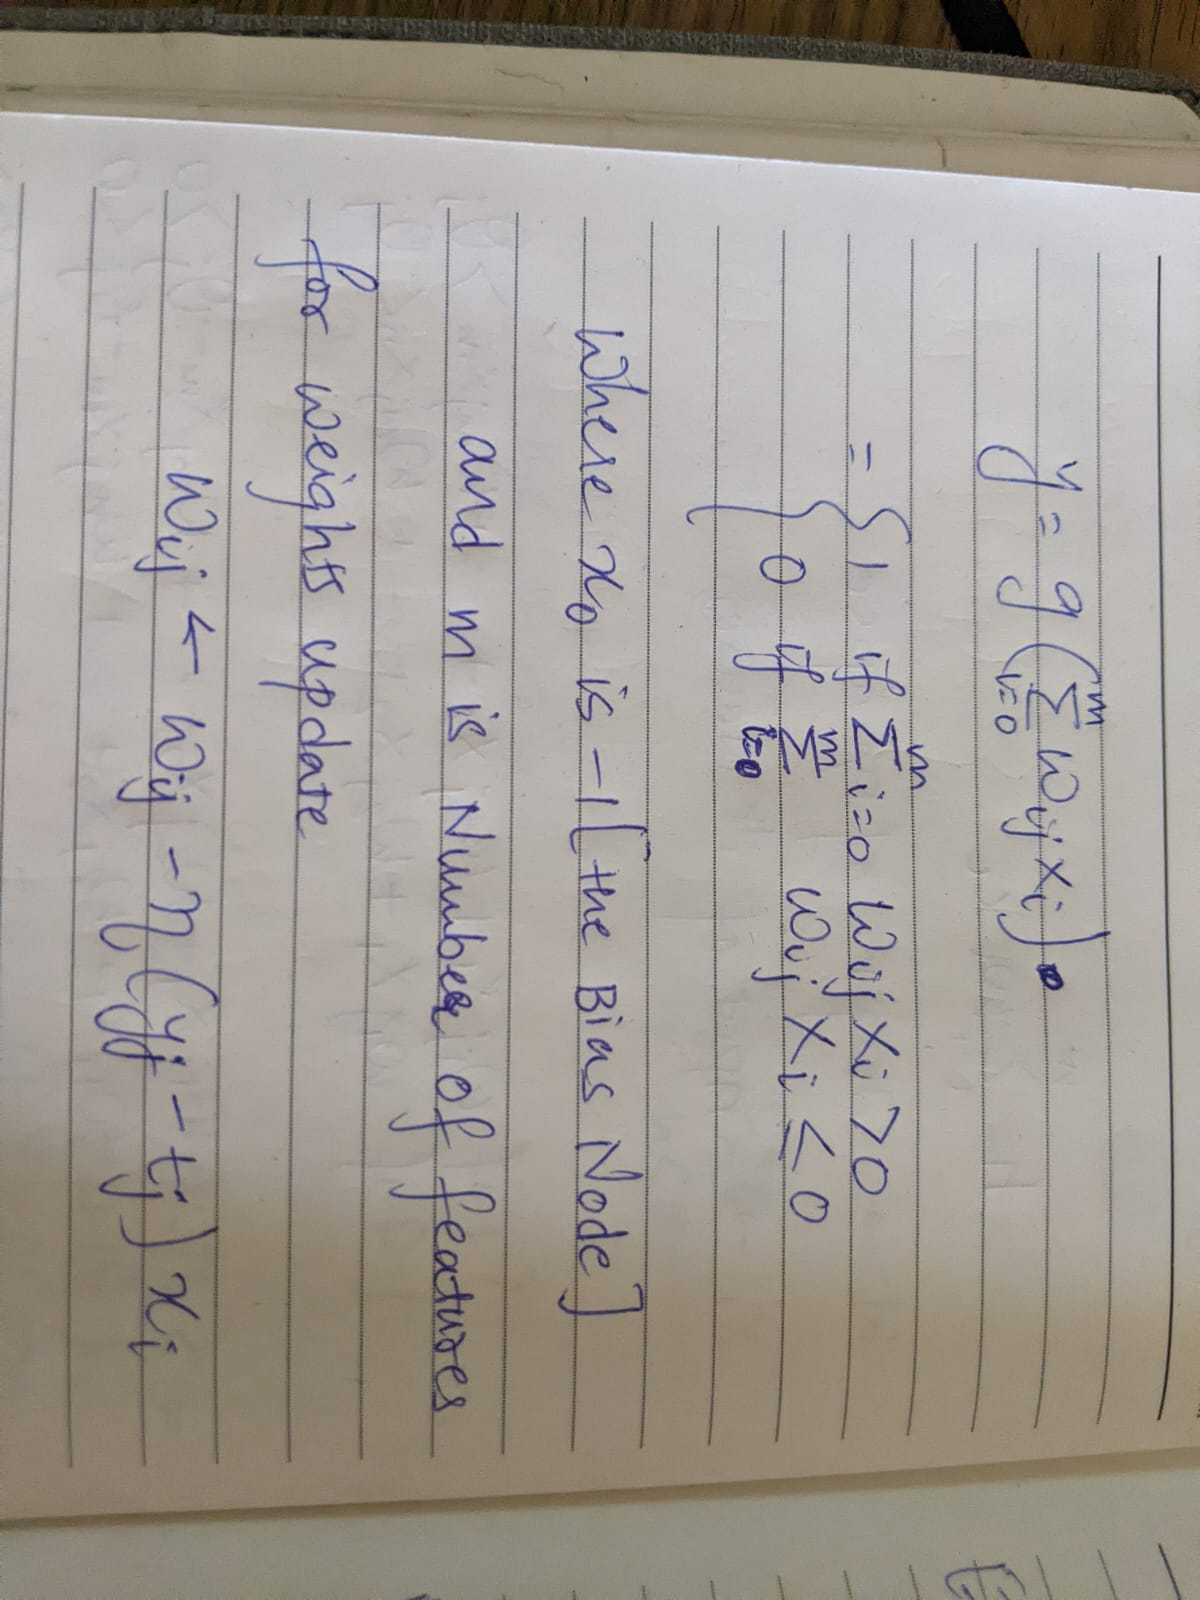 y = g(∑_{i=0}^{m} w_{ij} x_i).
= { 1 if ∑^{m} i=0 w_{ij} x_i > 0
0 if ∑_{i=0}^{m} w_{ij} x_i ≤ 0
where x_0 is -1 [the Bias Node]
and m is Number of features
for weights update
w_{ij} ← w_{ij} - η(y_j - t_j) x_i